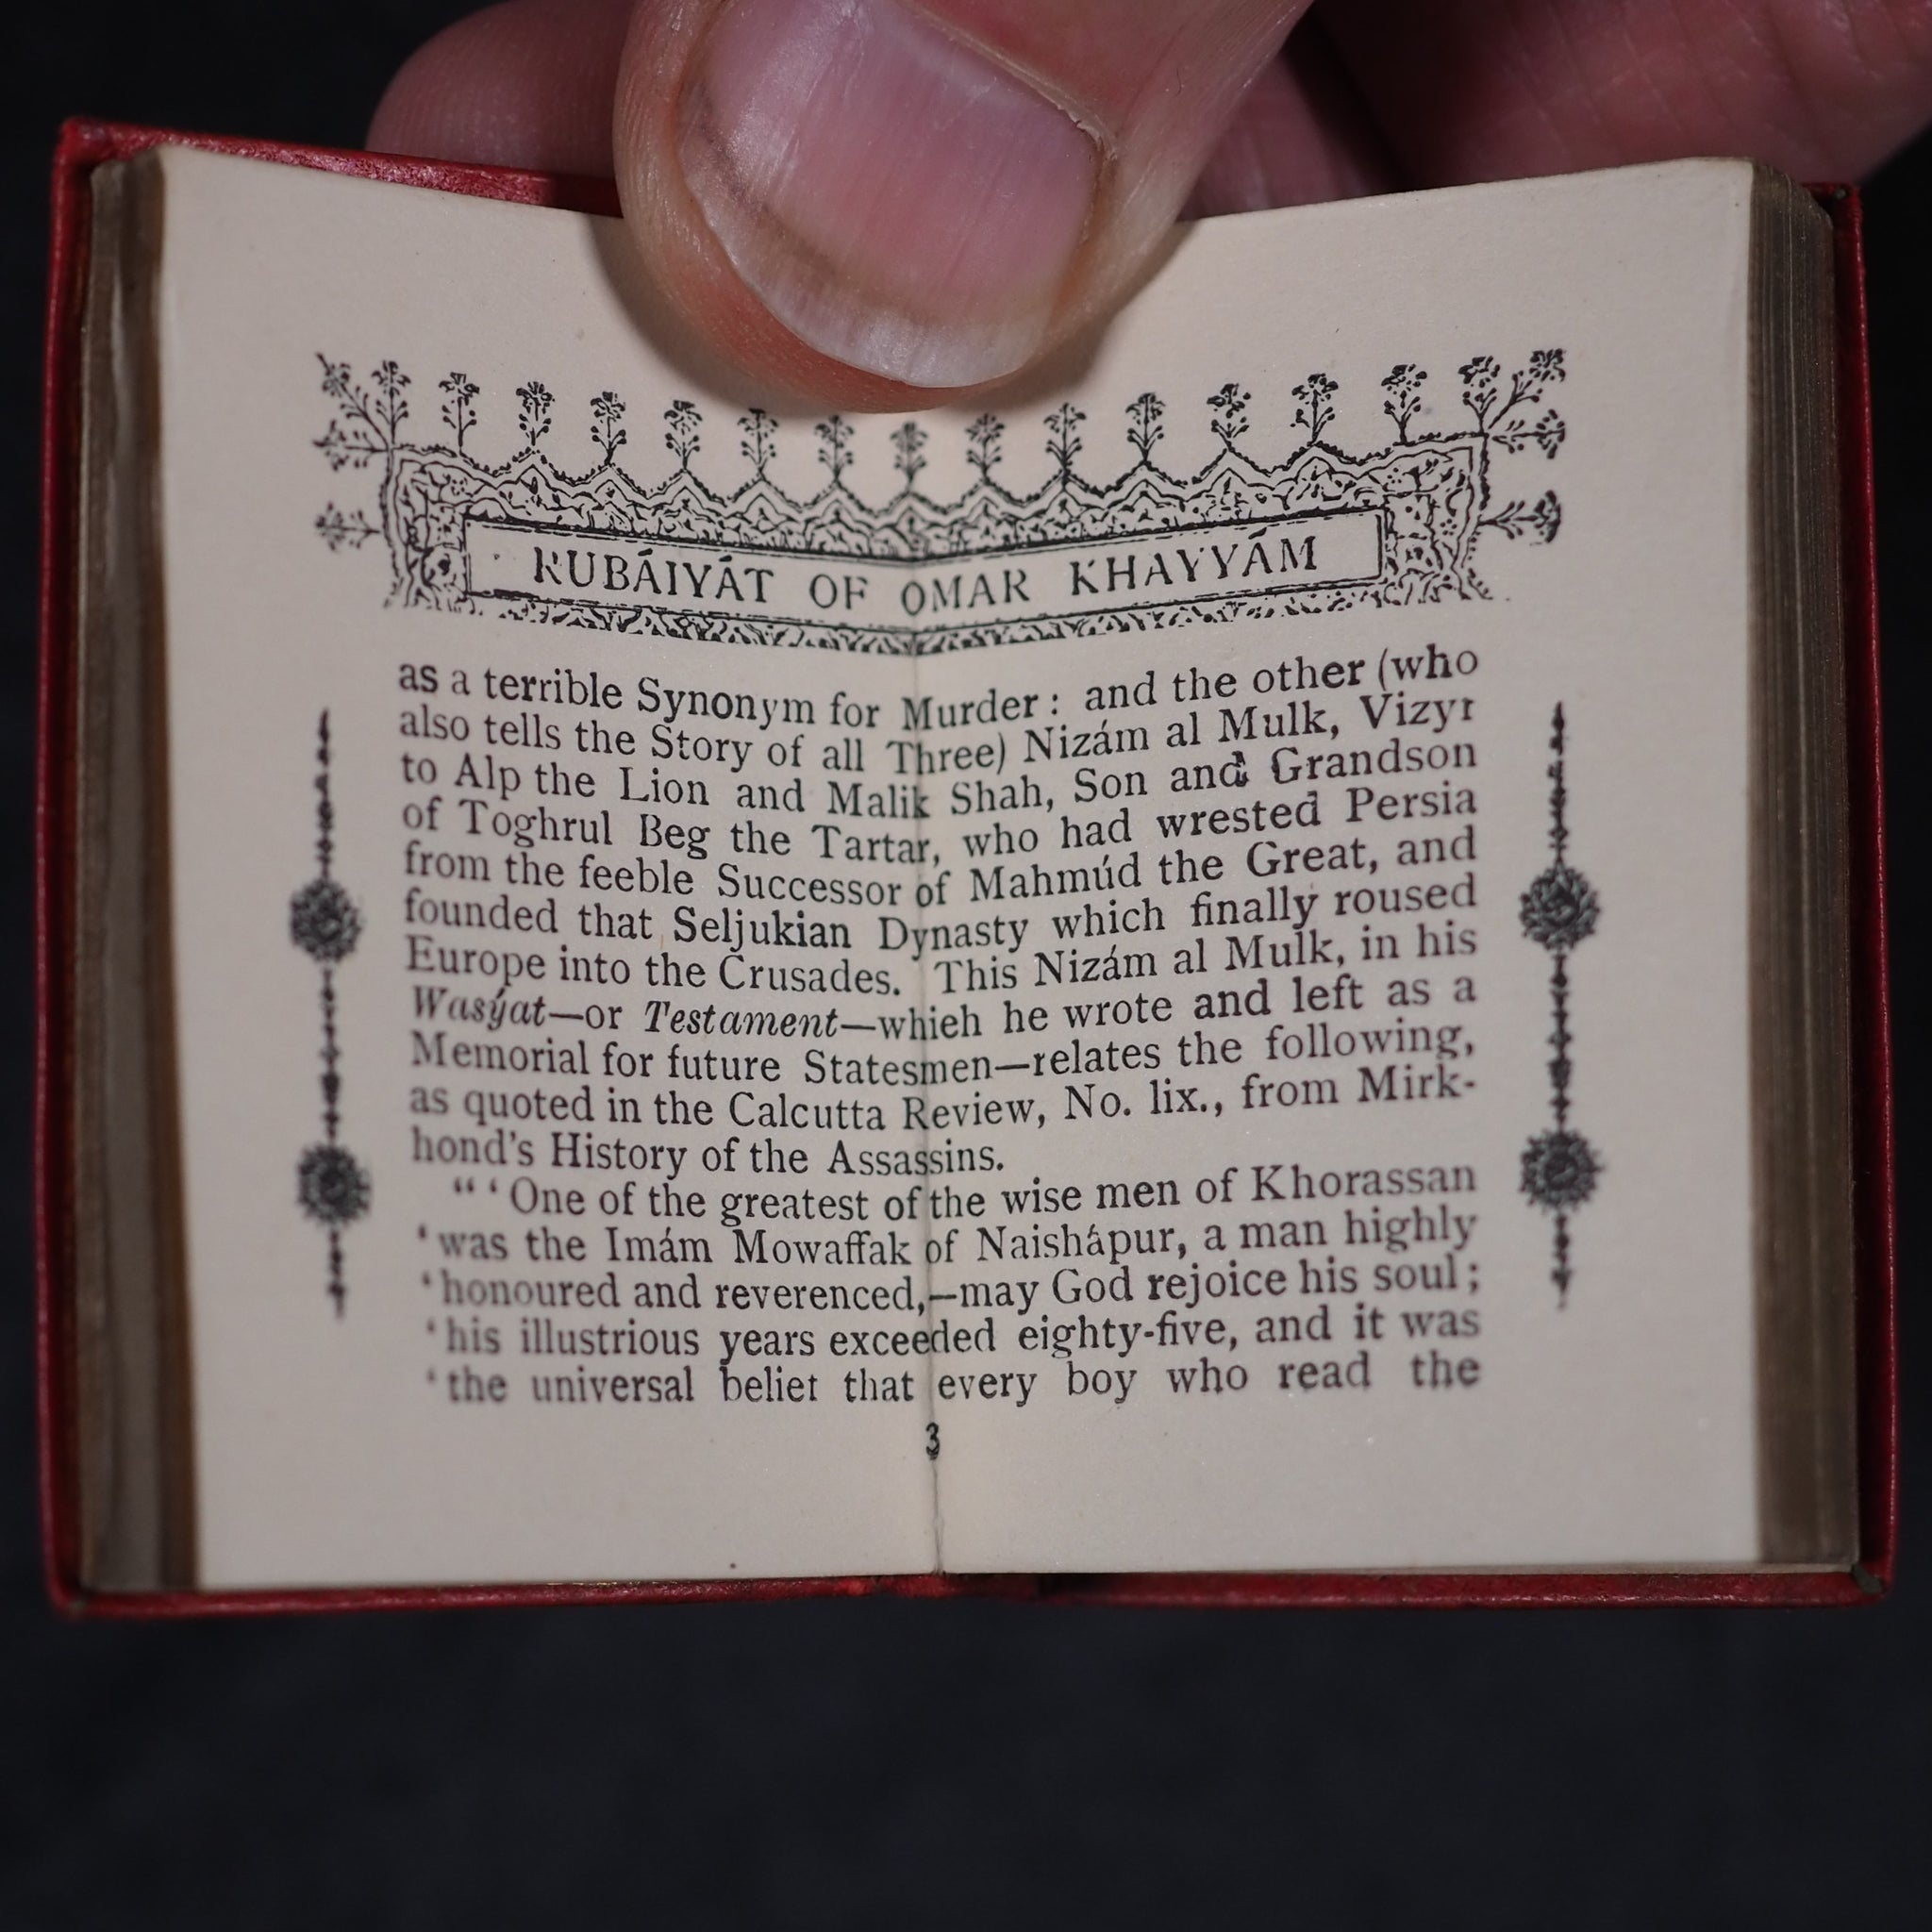 RUBÁIYÁT OF OMAR KHAYYÁM
as a terrible Synonym for Murder : and the other (who
also tells the Story of all Three) Nizám al Mulk, Vizyr
to Alp the Lion and Malik Shah, Son and Grandson
of Toghrul Beg the Tartar, who had wrested Persia
from the feeble Successor of Mahmúd the Great, and
founded that Seljukian Dynasty which finally roused
Europe into the Crusades. This Nizám al Mulk, in his
Wasýat—or Testament—whieh he wrote and left as a
Memorial for future Statesmen—relates the following,
as quoted in the Calcutta Review, No. lix., from Mirk-
hond's History of the Assassins.
“ ‘ One of the greatest of the wise men of Khorassan
‘ was the Imám Mowaffak of Naishápur, a man highly
‘ honoured and reverenced,—may God rejoice his soul ;
‘ his illustrious years exceeded eighty-five, and it was
‘ the universal belief that every boy who read the
3